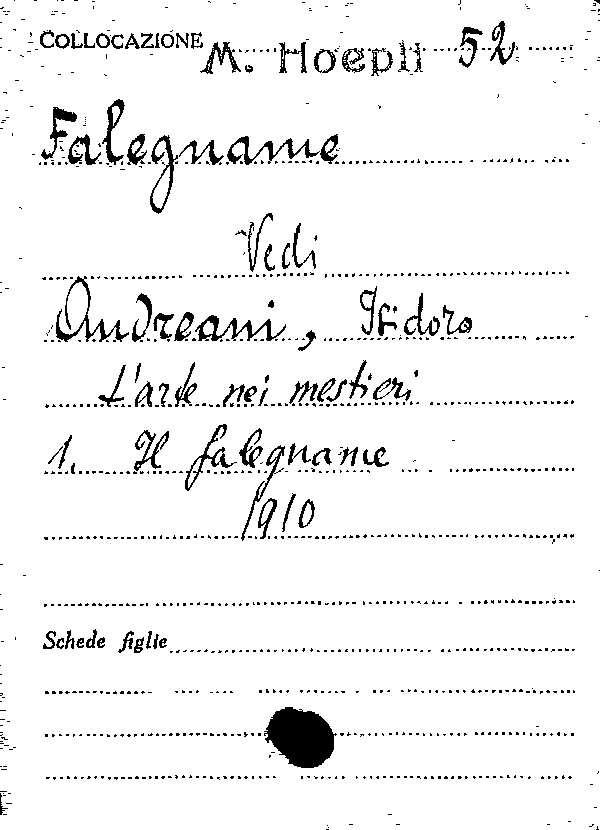 COLLOCAZIONE M. Hoepli 52
Falegname
Vedi
Andreani, Isidoro
L'arte nei mestieri
1. Il falegname
1910
Schede figlie